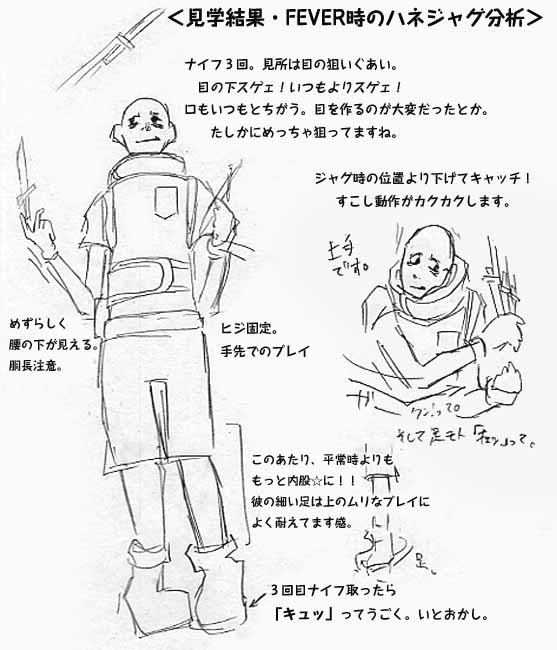 <見学結果・FEVER時のハネジャグ分析>
ナイフ3回。見所は目の狙いぐあい。
目の下スゲェ!いつもよりスゲェ!
口もいつもとちがう。目を作るのが大変だったとか。
たしかにめっちゃ狙ってますね。
ジャグ時の位置より下げてキャッチ!
すこし動作がカクカクします。
上手
です。
めずらしく
腰の下が見える。
胴長注意。
ヒジ固定。
手先でのプレイ
ガ
クン!って。
そして足モト「キュッ」って。
このあたり、平常時よりも
もっと内股☆に!!
彼の細い足は上のムリなプレイに
よく耐えてます感。
足。
3回目ナイフ取ったら
「キュッ」ってうごく。いとおかし。